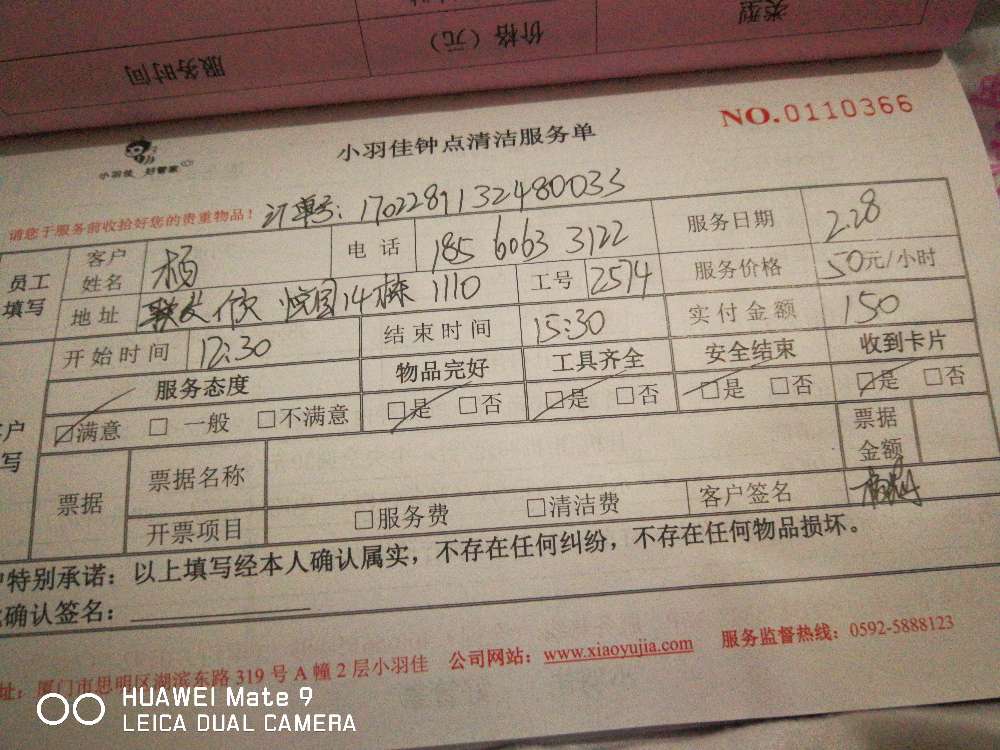 类型
价格（元）
服务时间
NO.0110366
小羽佳 好管家
小羽佳钟点清洁服务单
请您于服务前收拾好您的贵重物品！ 订单号：1702289132480033
员工填写 客户姓名 杨 电话 185 6063 3122 服务日期 2.28
地址 悦园14栋 1110 工号 2574 服务价格 50元/小时
开始时间 12:30 结束时间 15:30 实付金额 150
服务态度 物品完好 工具齐全 安全结束 收到卡片
户写 ☑满意 □ 一般 □不满意 ☑是 □否 ☑是 □否 ☑是 □否 ☑是 □否
票据 票据名称 票据金额
开票项目 □服务费 □清洁费 客户签名
户特别承诺：以上填写经本人确认属实，不存在任何纠纷，不存在任何物品损坏。
确认签名：
址：厦门市思明区湖滨东路 319 号 A 幢 2 层小羽佳 公司网站：www.xiaoyujia.com 服务监督热线：0592-5888123
HUAWEI Mate 9
LEICA DUAL CAMERA